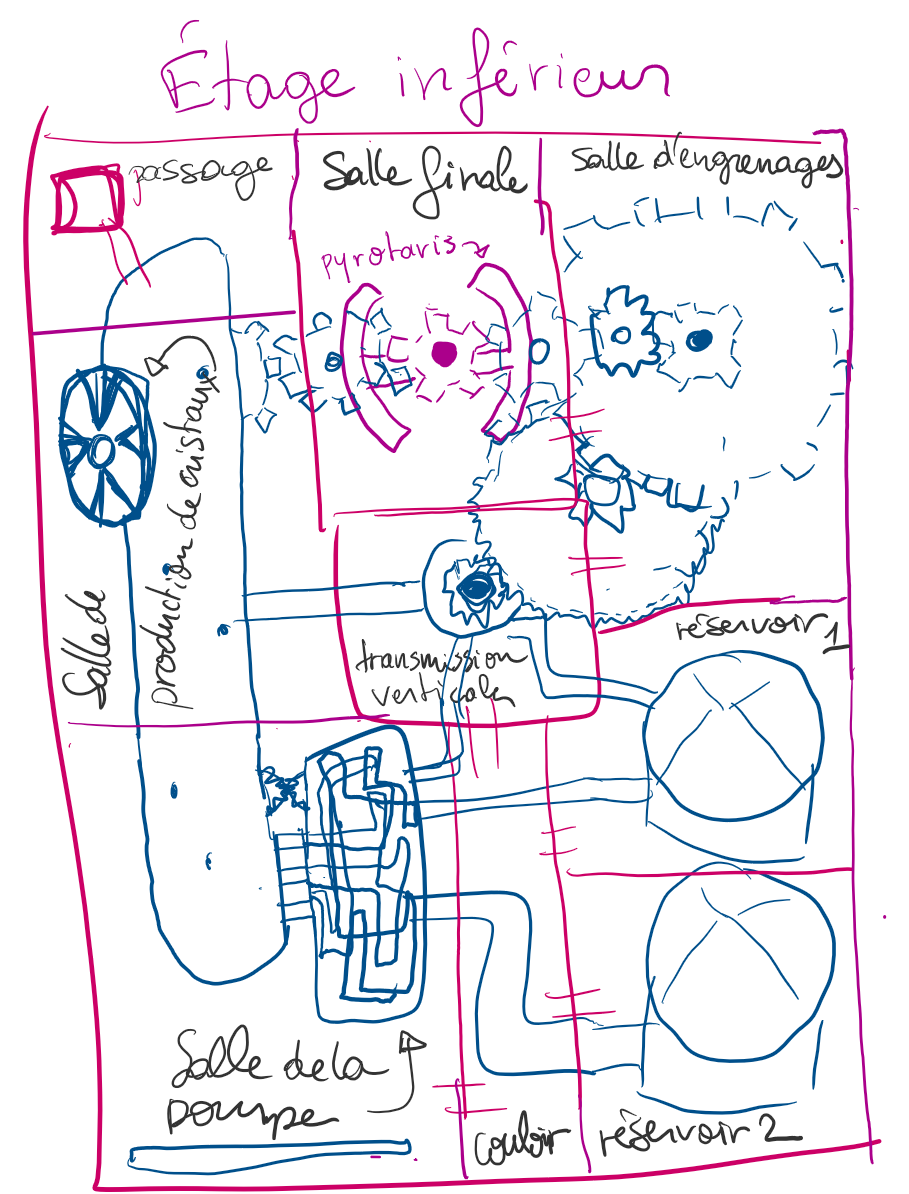 Étage inférieur
passage
Salle finale
Salle d'engrenages
pyrotaris
Salle de
production de cristaux
transmission
verticale
réservoir 1
Salle de la
pompe
couloir
réservoir 2